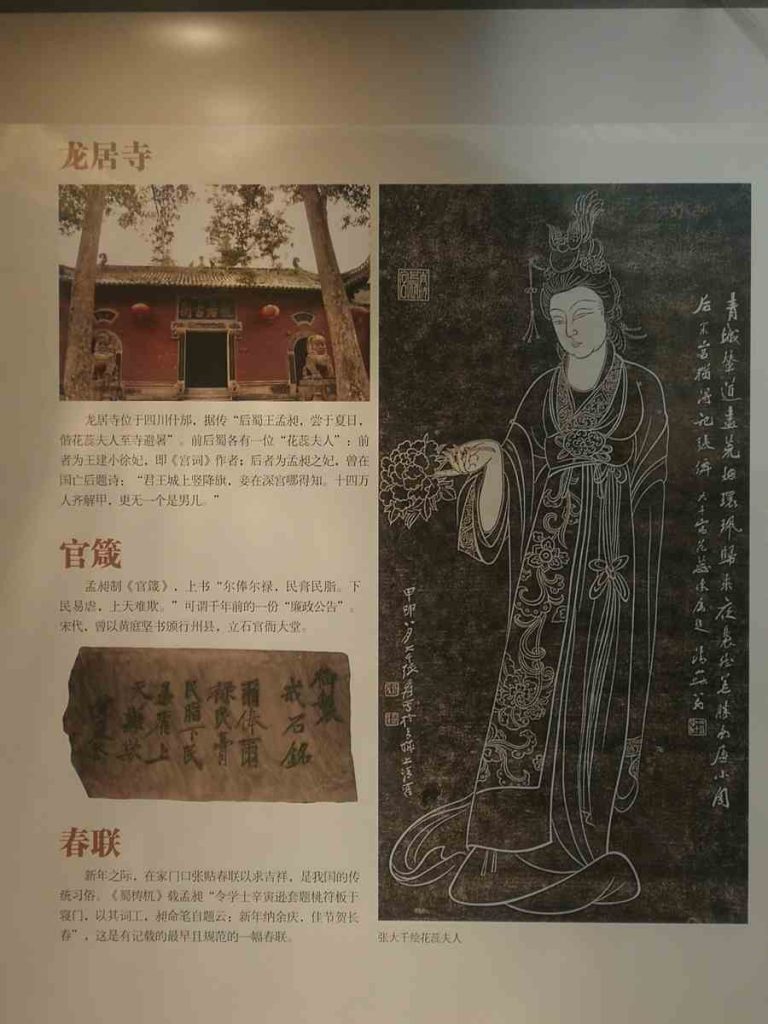 龙居寺
龙居寺位于四川什邡，据传“后蜀王孟昶，尝于夏日，
偕花蕊夫人至寺避暑”。前后蜀各有一位“花蕊夫人”：前
者为王建小徐妃，即《宫词》作者；后者为孟昶之妃，曾在
国亡后题诗：“君王城上竖降旗，妾在深宫哪得知。十四万
人齐解甲，更无一个是男儿。”
官箴
孟昶制《官箴》，上书“尔俸尔禄，民膏民脂。下
民易虐，上天难欺。”可谓千年前的一份“廉政公告”。
宋代，曾以黄庭坚书颁行州县，立石官衙大堂。
御製
戒石銘
爾俸爾
禄民膏
民脂下民
易虐上
天難欺
春联
新年之际，在家门口张贴春联以求吉祥，是我国的传
统习俗。《蜀梼杌》载孟昶“令学士辛寅逊套题桃符板于
寝门，以其词工，昶命笔自题云：新年纳余庆，佳节贺长
春”，这是有记载的最早且规范的一幅春联。
青城輦道盡荒烟環珮歸來夜
后宮描得記
甲申八月
张大千绘花蕊夫人